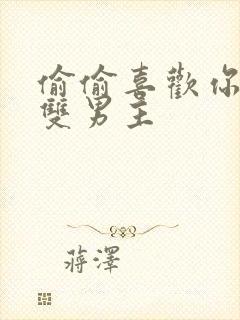 偷偷喜歡你
雙男主
蔣澤